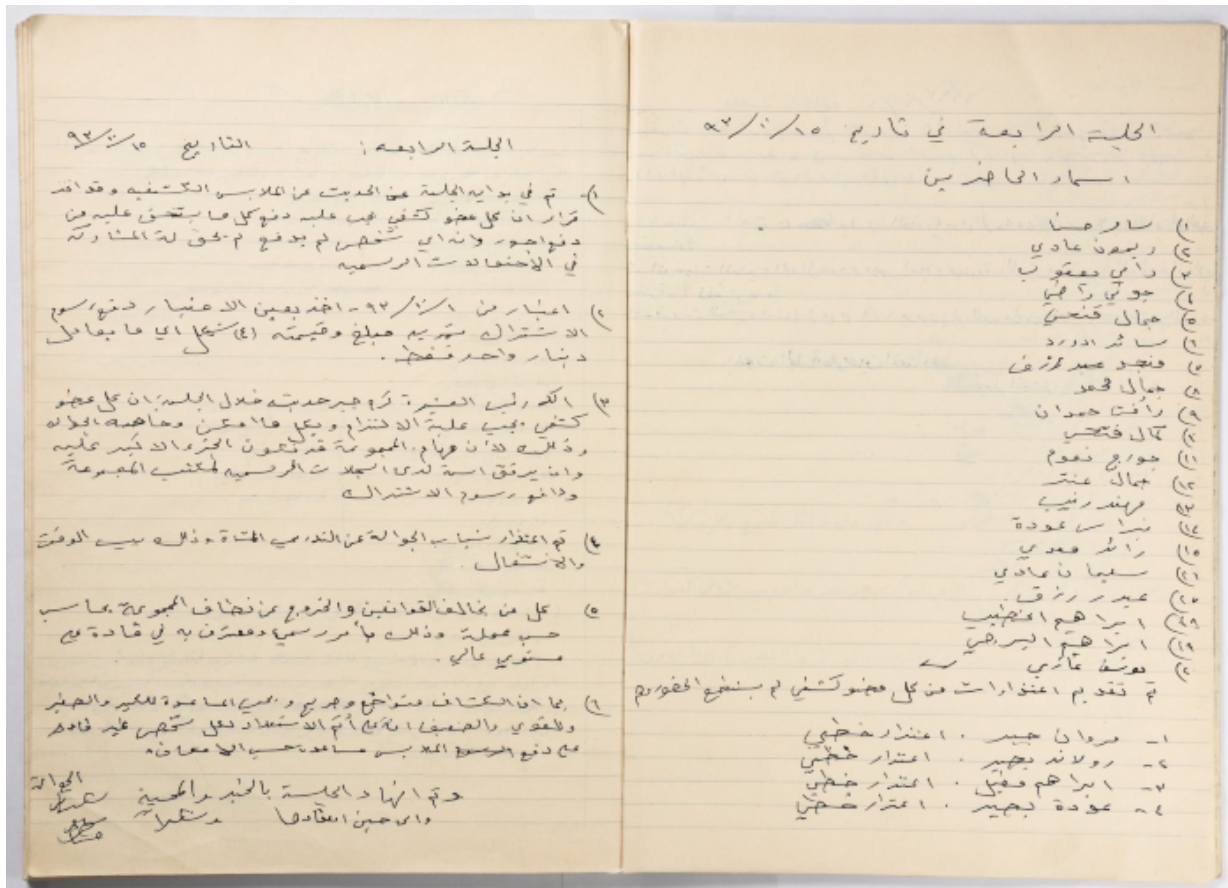 الجلسة الرابعة في تاريخ ١٥/١٠/٩٣
اسماء الحاضرين
١) سامر حسنا
٢) ريمون عادي
٣) رامي يعقوب
٤) جوني راضي
٥) جمال فتحي
٦) سائد ادورد
٧) منجد عبد
٨) جمال محمد
٩) رأفت حمدان
١٠) كمال فتحي
١١) جورج نعوم
١٢) جمال عنتر
١٣) مهند
١٤) نبراس عودة
١٥) رائد
١٦) سليمان عادي
١٧) عيد رزق
١٨) ابراهيم الخطيب
١٩) ابراهيم
٢٠) يوسف غازي
تم تقديم اعتذارات من كل عضو كشفي لم يستطع الحضور وهم
١- مروان جبر . اعتذار خطي
٢- رولاند بصير . اعتذار خطي
٣- ابراهيم عقيل . اعتذار خطي
٤- عودة بصير . اعتذار خطي
الجلسة الرابعة : التاريخ ١٥/١٠/٩٣
١) تم في بداية الجلسة عن الحديث عن الملابس الكشفيه وقد اخذ
قرار ان كل عضو كشفي يجب عليه دفع كل ما يستحق عليه من
دفع اجور وانه اي شخص لم يدفع لم يحق له المشاركة
في الاحتفالات الرسميه
٢) اعتبار من ١/١٠/٩٣ - اخذ بعين الاعتبار دفع رسوم
الاشتراك مبلغ وقيمته (٤) شيكل اي ما يعادل
دينار واحد فقط .
٣) اكد رئيس العشيرة خلال الجلسة ان كل عضو
كشفي يجب علية الالتزام وبكل ما امكن وخاصه الجواله
وذلك لأن مهام المجموعة قد تكون الجزء الاكبر عليه
وان يرفق اسمة لدى السجلات الرسميه لمكتب المجموعة
ودافع رسوم الاشتراك
٤) تم اعتذار شباب الجوالة عن التدريب وذلك بسبب الوقت
والانشغال .
٥) كل من يخالف القوانين والخروج عن نطاق المجموعة يحاسب
حسب عملة وذلك بأمر رسمي ومعترف به في قادة على
مستوي عالي .
٦) بما ان الكشاف متواضع و ويحب المساعدة للكبير والصغير
وللقوي والضعيف انة على أتم الاستعداد لكل شخص غير قادر
على دفع الملابس مساعده حسب الامكان .
وتم انهاء الجلسة بالخير والمحبة
والى حين انعقادها وشكراً
الجوالة